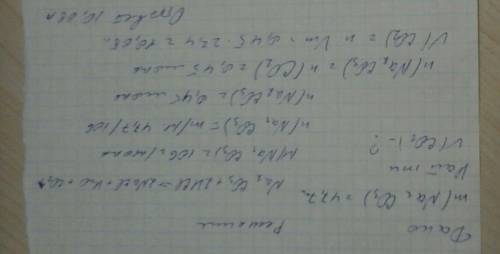 Дано
Решение
m(Na₂CO₃) = 47,7г
Na₂CO₃+2HCl=>2NaCl+H₂O+CO₂
Найти
M(Na₂CO₃)=106г/моль
V(CO₂)-?
n(Na₂CO₃)=m/M=47,7/106
n(Na₂CO₃)=0,45 моль
n(Na₂CO₃)=n(CO₂)=0,45 моль
V(CO₂)=n Vm=0,45·22,4=10,08л
Ответ 10,08л